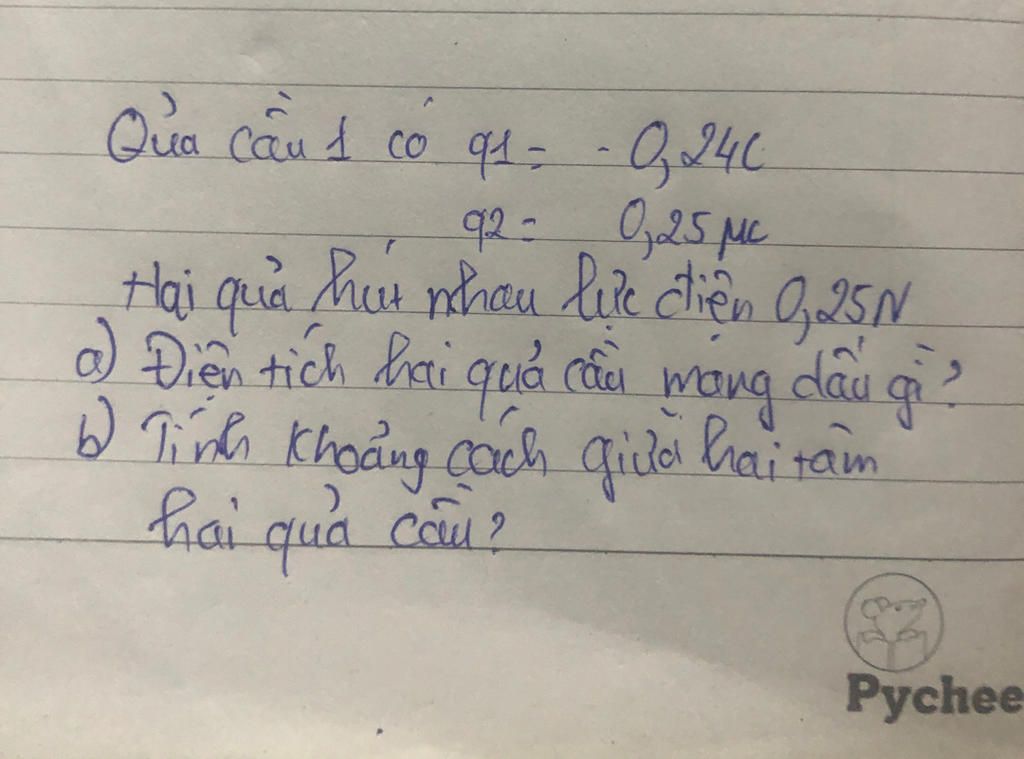 Qủa cầu 1 có q1 = - 0,24C
q2 = 0,25 μC
Hai quả hút nhau lực điện 0,25N
a) Điện tích hai quả cầu mang dấu gì?
b) Tính khoảng cách giữa hai tâm
hai quả cầu?
Pychee